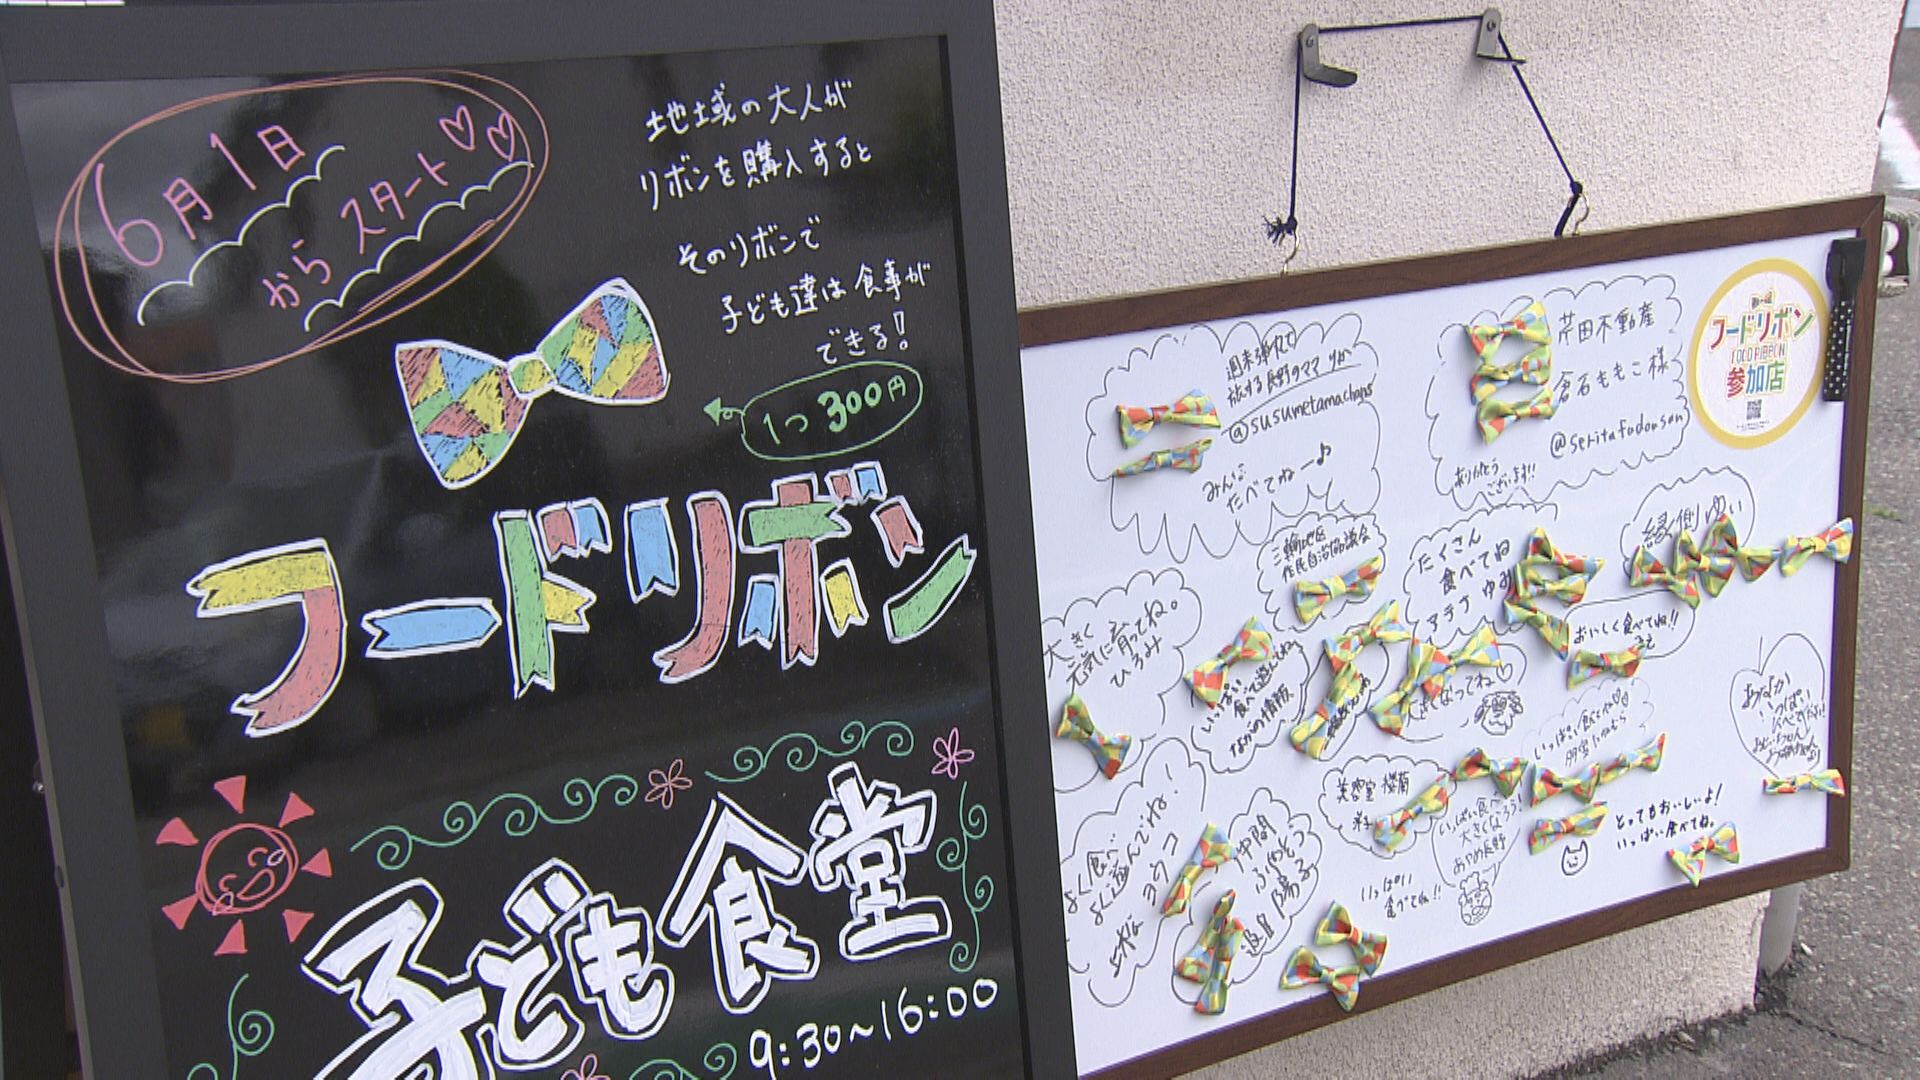 6月1日
からスタート
地域の大人が
リボンを購入すると
そのリボンで
子ども達は食事が
できる!
1つ300円
フードリボン
子ども食堂
9:30~16:00
フードリボン
FOOD RIBBON
参加店
@susumetamachans
みんな
たべてねー♪
芹田不動産
倉石ももこ様
@seritafudousan
ありがとう
ございます!!
三輪地区
住民自治協議会
たくさん
食べてね
縁側ゆい
大きく
元気に育ってね。
ひろみ
おいしく食べてね!!
いっぱい
食べて遊んでね
ながの情報
大きくなってね
いっぱい食べてね
美容室
いっぱい食べて
大きくなろう!
あやめ長野
とってもおいしいよ!
いっぱい食べてね。
おなか
いっぱい
よく食べ
よく遊んでね!
ヨウコ
仲間
陽子
いっぱい
食べてね!!